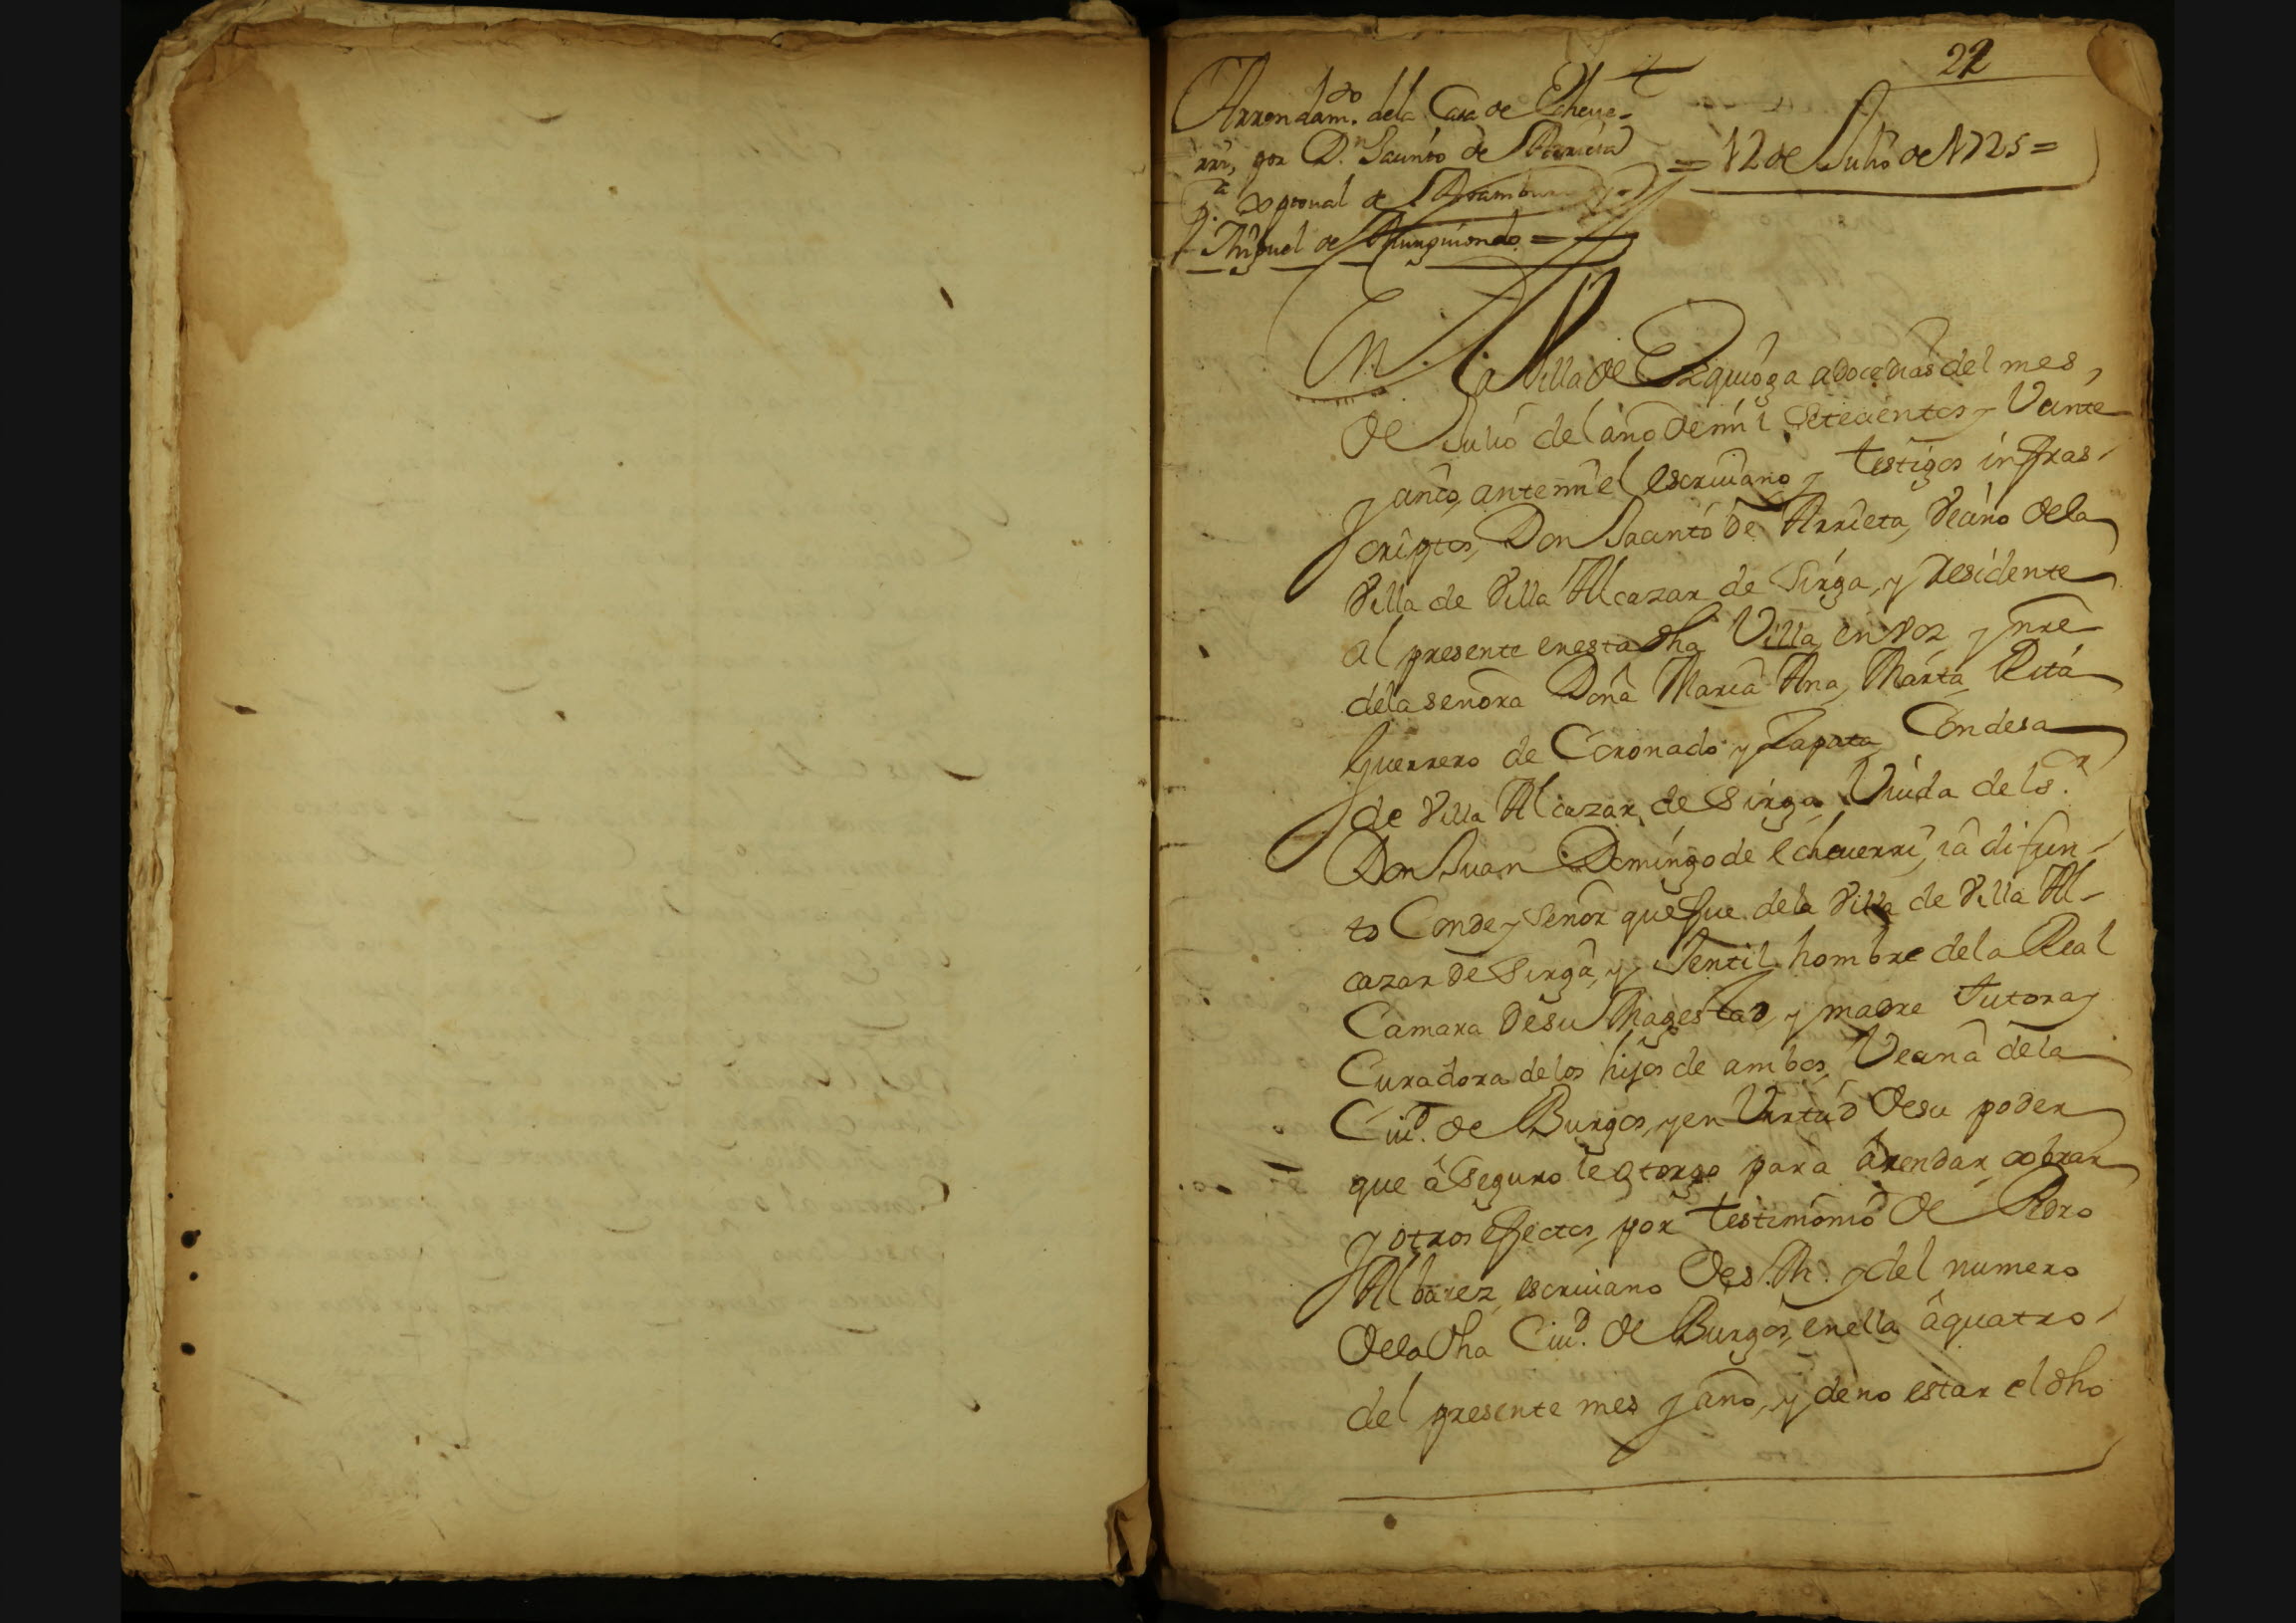 22
Arrendam.to dela Casa de Echeue-
rri, por D.n Jacinto de Arrieta
= 12 de Julio de 1725 =
p.a Xptoual de Aramburu y
Miguel de Aurquiondo =
En La Villa de Ezquioga a doce dias del mes,
de Julio del año de mil Setecientos y Veinte
y cinco, ante mi el escriuano y testigos infras-
criptos, Don Jacinto de Arrieta, Vecino dela
Villa de Villa Alcazar de Sirga, y Residente
al presente enesta dha Villa, en voz y nre
dela señora Doña Maria Ana, Marta, Rita
Guerrero de Coronado y Zapata, Condesa
de Villa Alcazar, de Sirga, Viuda del s.r
Don Juan Domingo de echeuerri, ia difun-
to Conde y Señor que fue dela Villa de Villa Al-
cazar de Sirga, y Jentil hombre dela Real
Camara de su Magestad, y madre tutora y
Curadora de los hijos de ambos, Vecina dela
Ciu.d de Burgos, y en Virtud de su poder
que aseguro le otorgo para arrendar, cobrar
y otros efectos, por testimonio de Pedro
Albarez, escriuano de s. M. y del numero
dela dha Ciu.d de Burgos, enella a quatro
del presente mes y año, y de no estar el dho